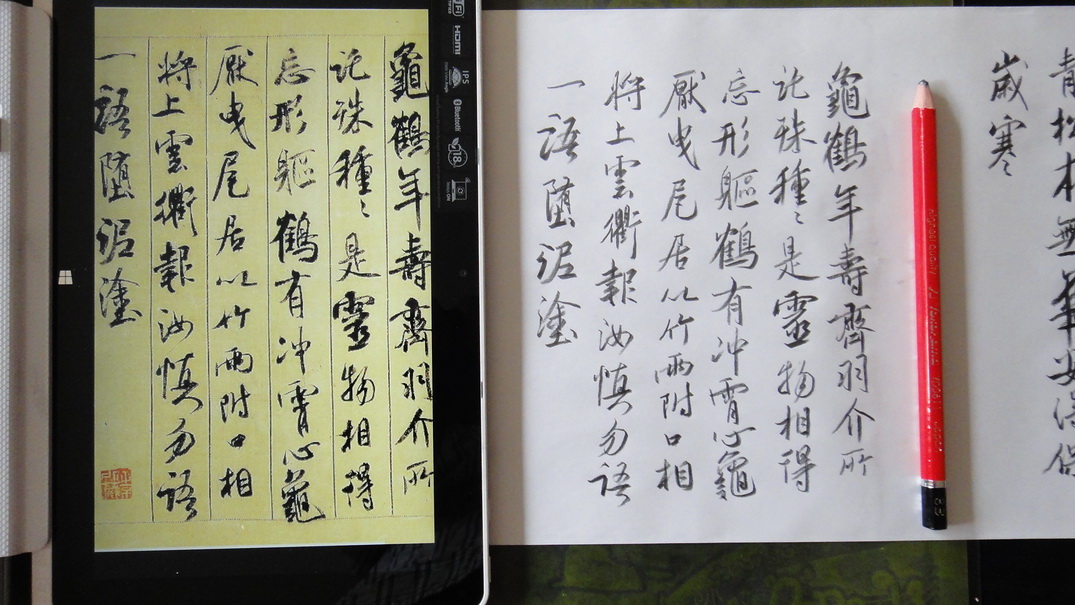 龜鶴年壽齊羽介所
託殊種〻是靈物相得
忘形軀鶴有冲霄心龜
厭曳尾居以竹兩附口相
將上雲衢報汝慎勿語
一語墮泥塗
HDMI
IPS
Bluetooth
青松本無華安得保
歲寒
龜鶴年壽齊羽介所
託殊種〻是靈物相得
忘形軀鶴有冲霄心龜
厭曳尾居以竹兩附口相
將上雲衢報汝慎勿語
一語墮泥塗